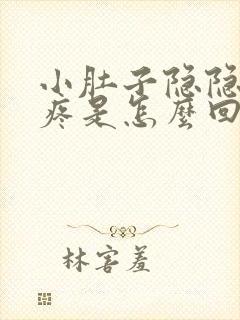 小肚子隐隐
疼是怎麽回
林害羞